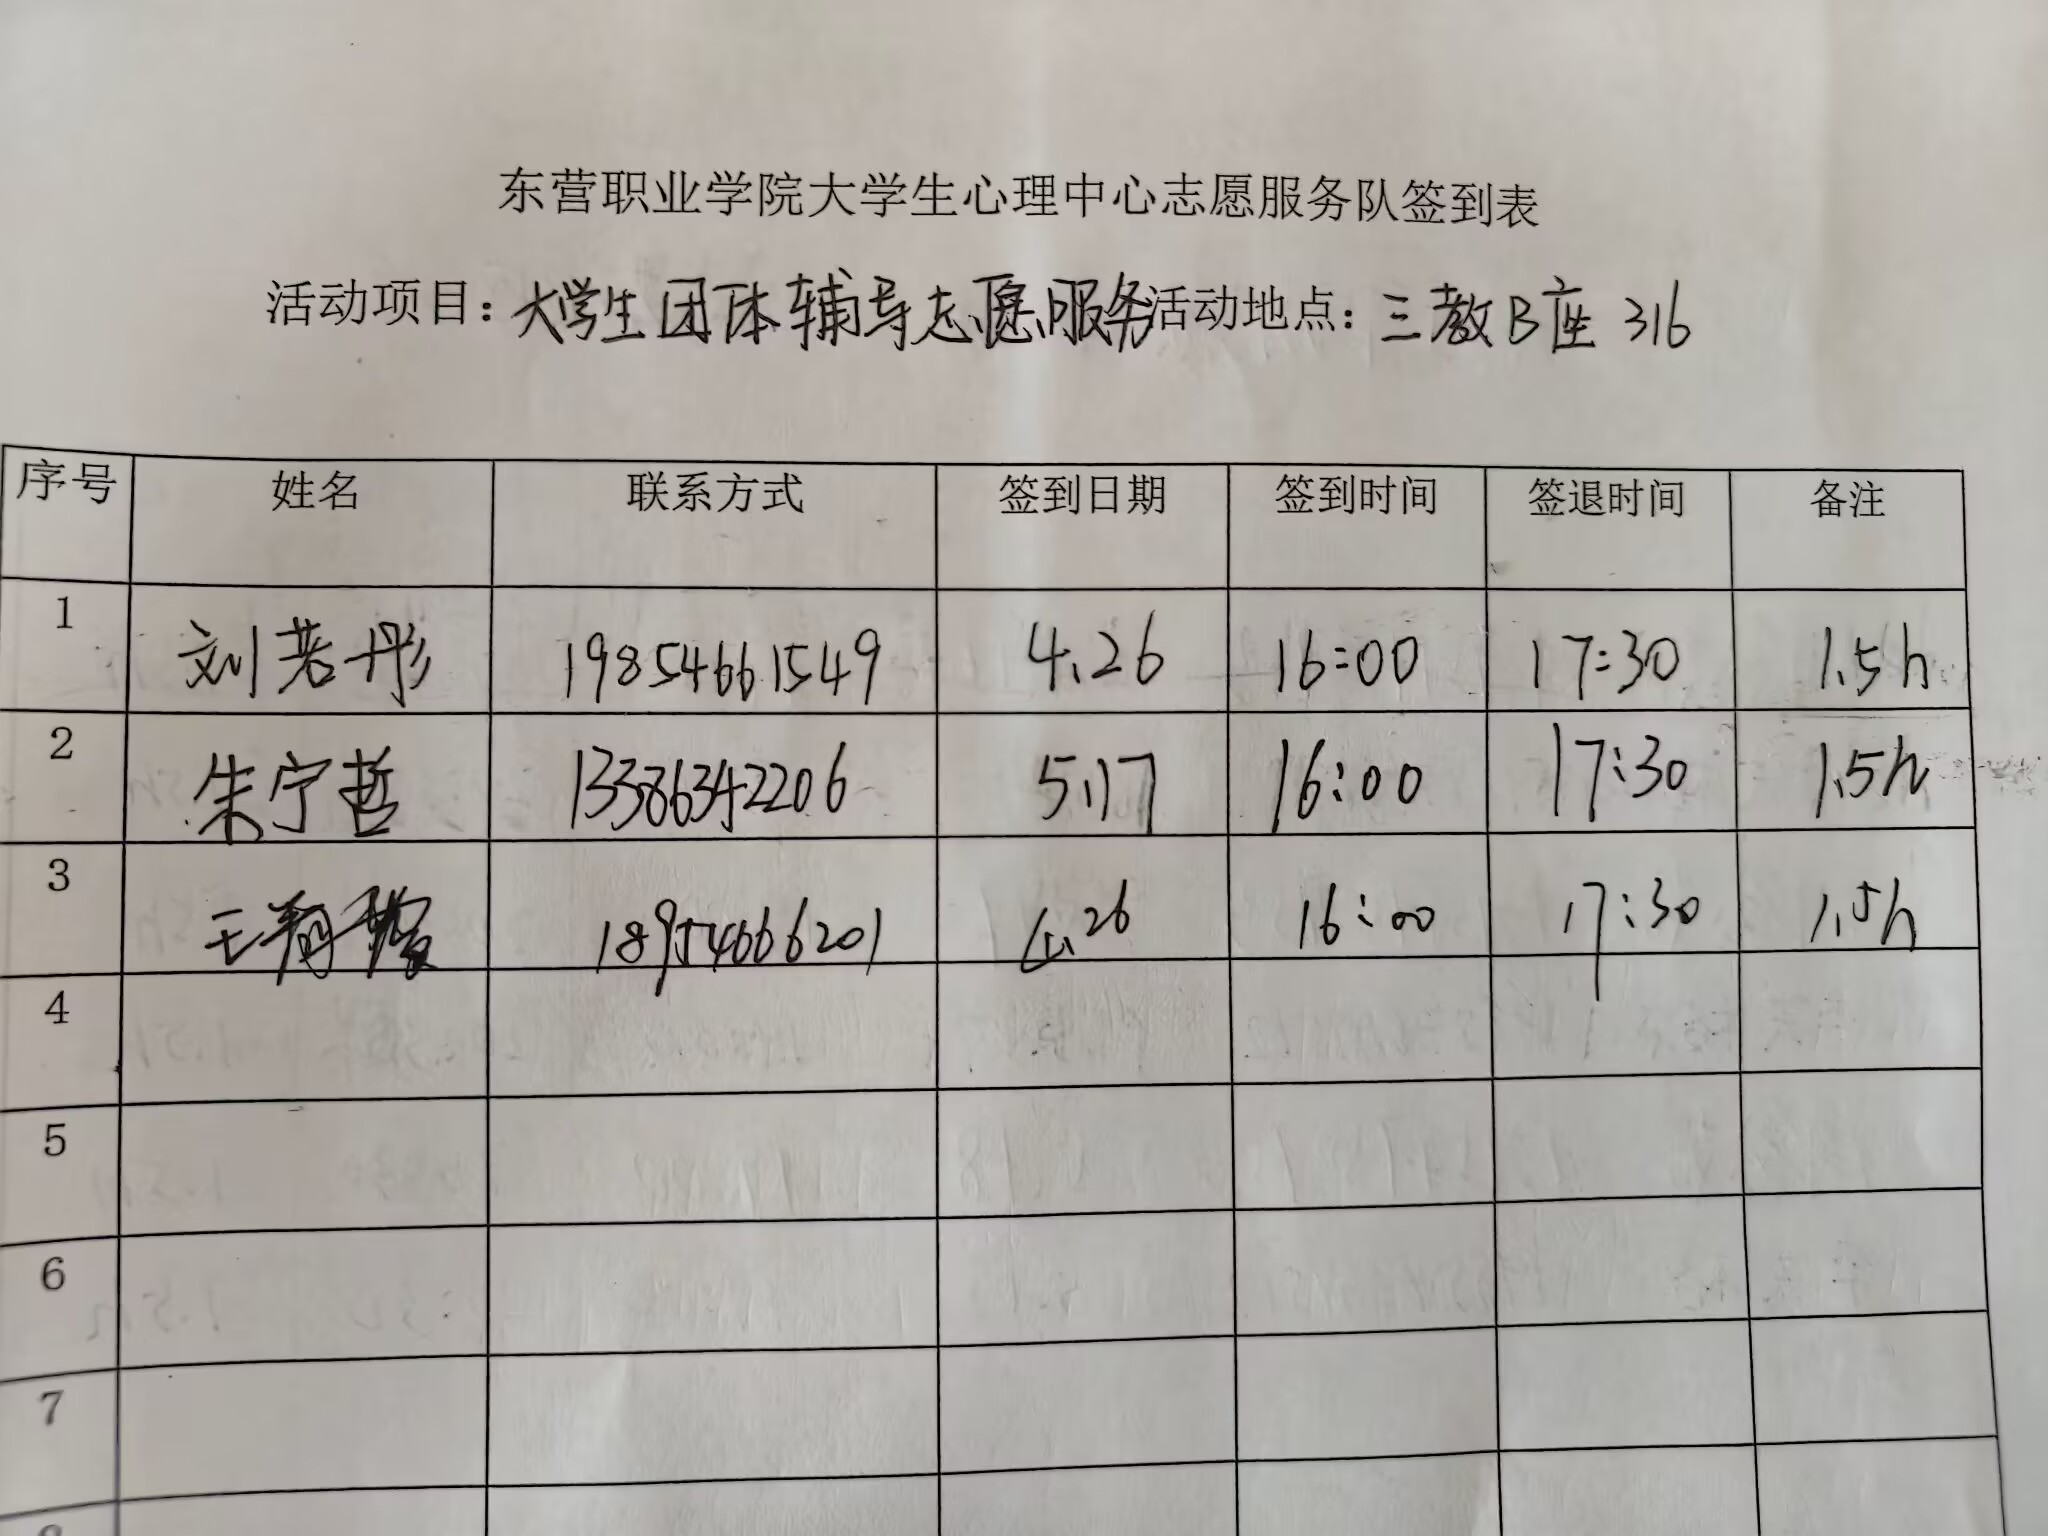 东营职业学院大学生心理中心志愿服务队签到表
活动项目：大学生团体辅导志愿服务 活动地点：三教B座 316
序号 姓名 联系方式 签到日期 签到时间 签退时间 备注
1 刘若彤 19854661549 4.26 16:00 17:30 1.5h
2 朱宁哲 13386342206 5.17 16:00 17:30 1.5h
3 王 18954666201 26 16:00 17:30 1.5h
4
5
6
7